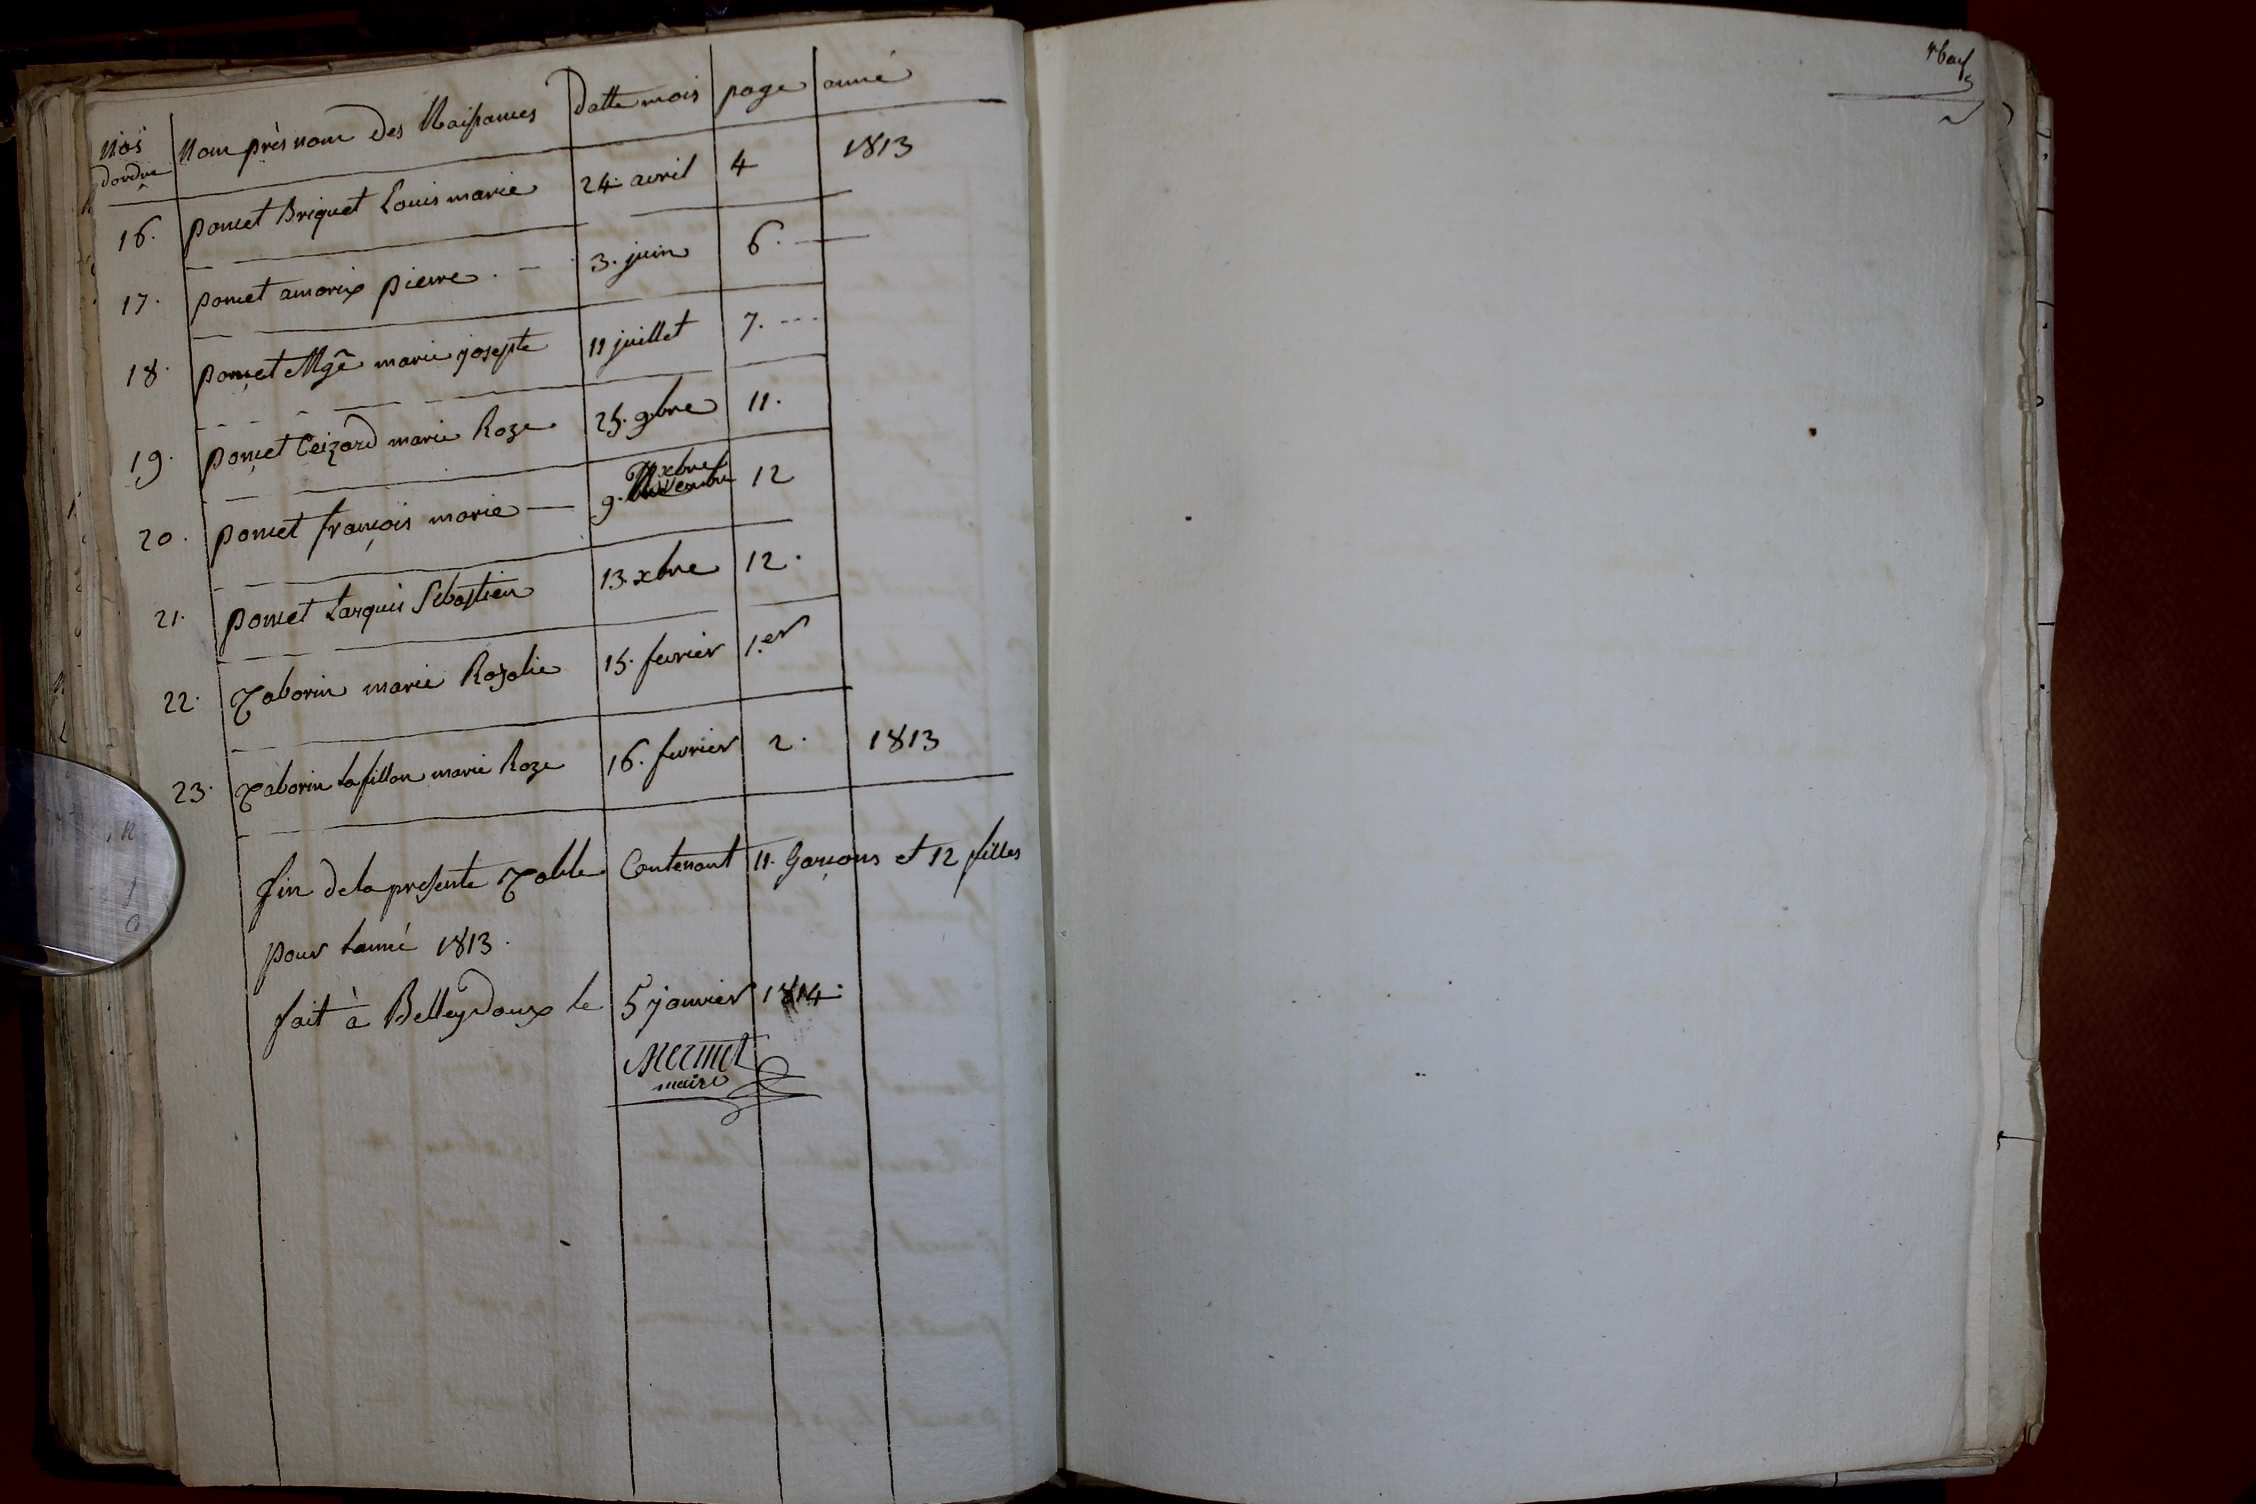 Nos dordre Nom près nom des Naissances Datte mois page anné
16. poncet Briquet Louis marie 24. avril 4 1813
17. poncet amorix pierre. 3. juin 6.
18. poncet Mge marie josepte 11 juillet 7.
19. poncet Ceizard marie Roze 25. 9bre 11.
20. poncet françois marie 9. xbre 12
21. poncet Larquis Sebastien 13. xbre 12.
22. Taborin marie Rosalie 15. fevrier 1.er
23. Taborin Lafillon marie Roze 16. fevrier 2. 1813
fin de la presente Table Contenant 11. Garçons et 12 filles
pour Lanné 1813.
fait à Belleydoux le 5 janvier 1814.
Mermet
maire